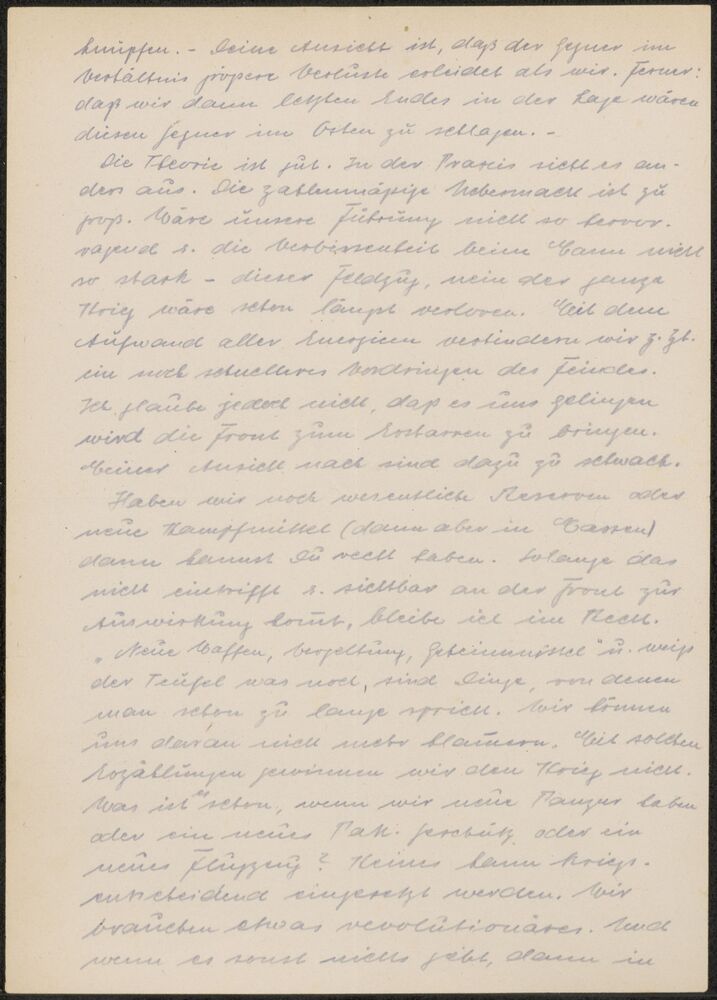 knüpfen. – Deine Ansicht ist, daß der Gegner im
Verhältnis größere Verluste erleidet als wir. Ferner:
daß wir dann letzten Endes in der Lage wären
diesen Gegner im Osten zu schlagen. –
Die Theorie ist gut. In der Praxis sieht es an-
ders aus. Die zahlenmäßige Uebermacht ist zu
groß. Wäre unsere Führung nicht so hervor-
ragend u. die Verbissenheit beim Mann nicht
so stark – dieser Feldzug, nein der ganze
Krieg wäre schon längst verloren. Mit dem
Aufwand aller Energien verhindern wir z. Zt.
ein noch schnelleres Vordringen des Feindes.
Ich glaube jedoch nicht, daß es uns gelingen
wird die Front zum Erstarren zu bringen.
Meiner Ansicht nach sind dazu zu schwach.
Haben wir noch wesentliche Reserven oder
neue Kampfmittel (dann aber in Massen)
dann kannst Du recht haben. Solange das
nicht eintrifft u. sichtbar an der Front zur
Auswirkung komt, bleibe ich im Recht.
„Neue Waffen, Vergeltung, Geheimmittel" u. weiß
der Teufel was noch, sind Dinge, von denen
man schon zu lange spricht. Wir können
uns daran nicht mehr klammern. Mit solchen
Erzählungen gewinnen wir den Krieg nicht.
Was ist es schon, wenn wir neue Panzer haben
oder ein neues Pak. Geschütz oder ein
neues Flugzeug? Keines kann kriegs-
entscheidend eingesetzt werden. Wir
brauchen etwas revolutionäres. Und
wenn es sonst nichts gibt, dann in